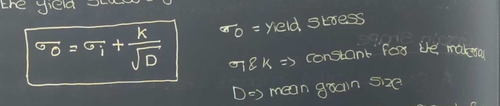 the yield stress
σ₀ = σᵢ + k/√D
σ₀ = Yield stress
σ & k => constant for the material
D => mean grain size